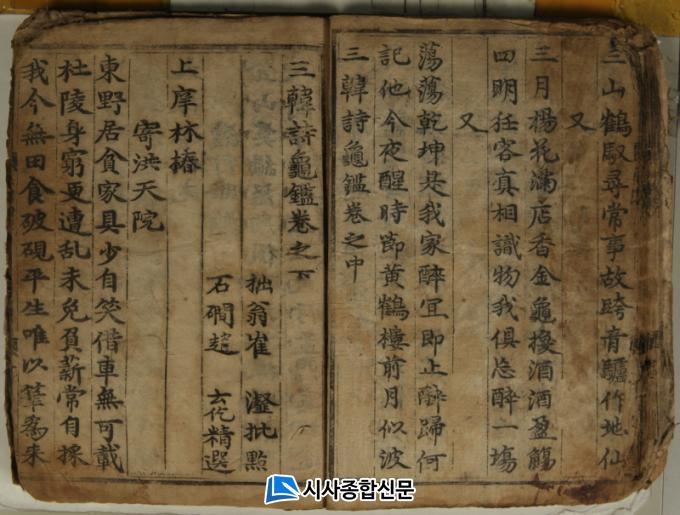 三山鶴馭尋常事故跨青驢作地仙
又
三月楊花滿店香金龜換酒酒盈觴
四明狂客真相識物我俱忘醉一場
又
蕩蕩乾坤是我家醉宜即止醉歸何
記他今夜醒時節黃鶴樓前月似波
三韓詩龜鑑卷之中
三韓詩龜鑑卷之下
拙翁崔 瀣批點
石磵趙 云仡精選
上庠林椿
寄洪天院
東野居貧家具少自笑借車無可載
杜陵身窮更遭乱未免負薪常自採
我今無田食破硯平生唯以筆爲耒
시사종합신문